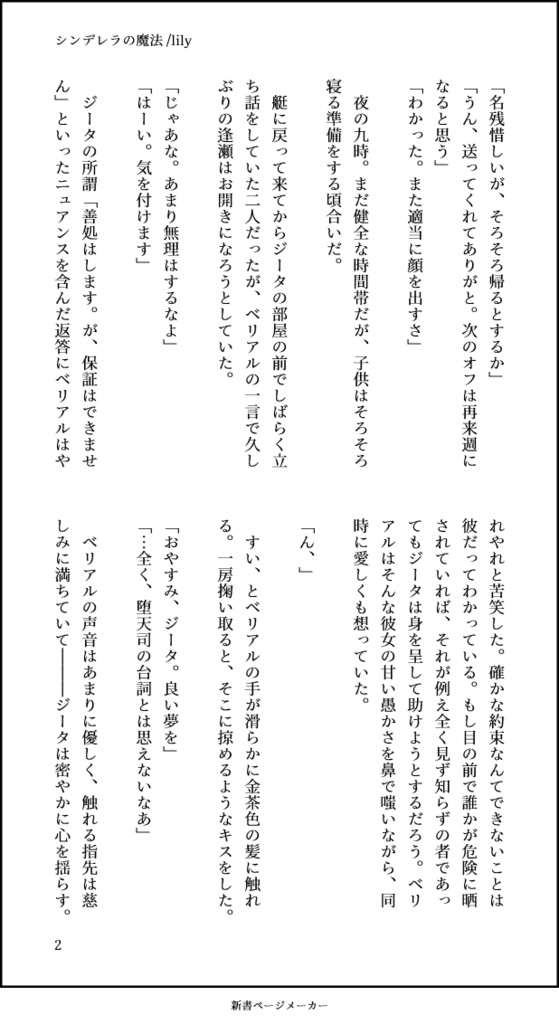 シンデレラの魔法/lily
「名残惜しいが、そろそろ帰るとするか」
「うん、送ってくれてありがと。次のオフは再来週に
なると思う」
「わかった。また適当に顔を出すさ」
夜の九時。まだ健全な時間帯だが、子供はそろそろ
寝る準備をする頃合いだ。
艇に戻って来てからジータの部屋の前でしばらく立
ち話をしていた二人だったが、ベリアルの一言で久し
ぶりの逢瀬はお開きになろうとしていた。
「じゃあな。あまり無理はするなよ」
「はーい。気を付けます」
ジータの所謂「善処はします。が、保証はできませ
ん」といったニュアンスを含んだ返答にベリアルはや
れやれと苦笑した。確かな約束なんてできないことは
彼だってわかっている。もし目の前で誰かが危険に晒
されていれば、それが例え全く見ず知らずの者であっ
てもジータは身を呈して助けようとするだろう。ベリ
アルはそんな彼女の甘い愚かさを鼻で嗤いながら、同
時に愛しくも想っていた。
「ん、」
すい、とベリアルの手が滑らかに金茶色の髪に触れ
る。一房掬い取ると、そこに掠めるようなキスをした。
「おやすみ、ジータ。良い夢を」
「…全く、堕天司の台詞とは思えないなあ」
ベリアルの声音はあまりに優しく、触れる指先は慈
しみに満ちていて――ジータは密やかに心を揺らす。
2
新書ページメーカー